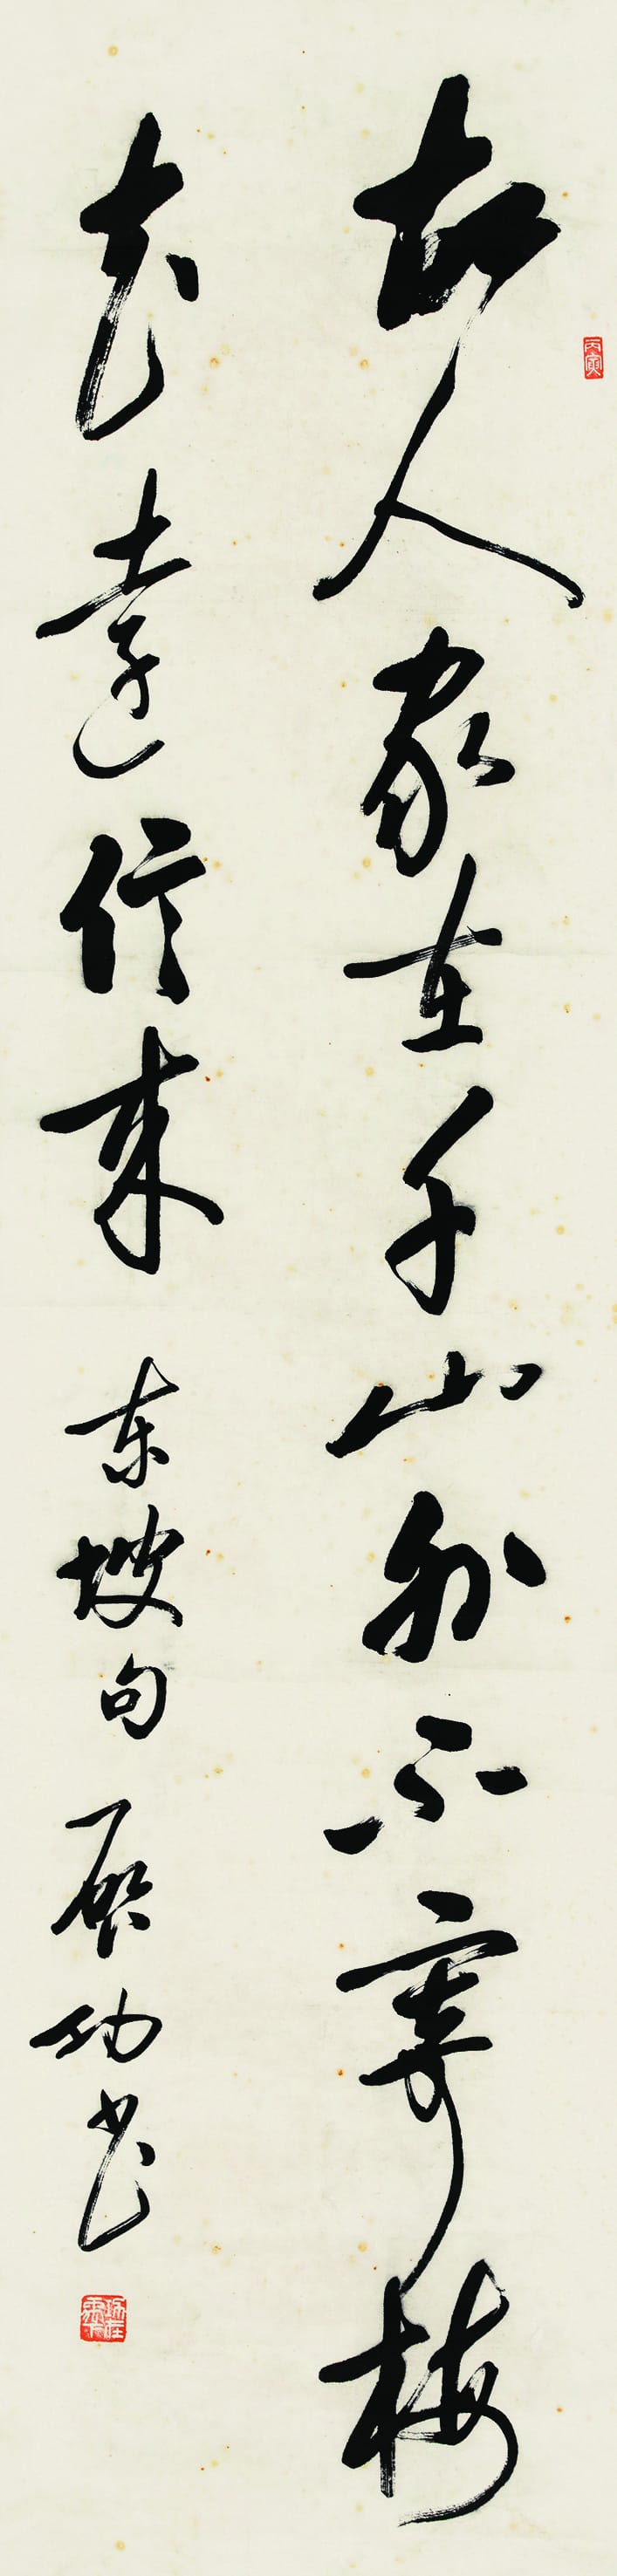 丙寅
故人家在千山外不寄梅
花遠信来 东坡句 启功书